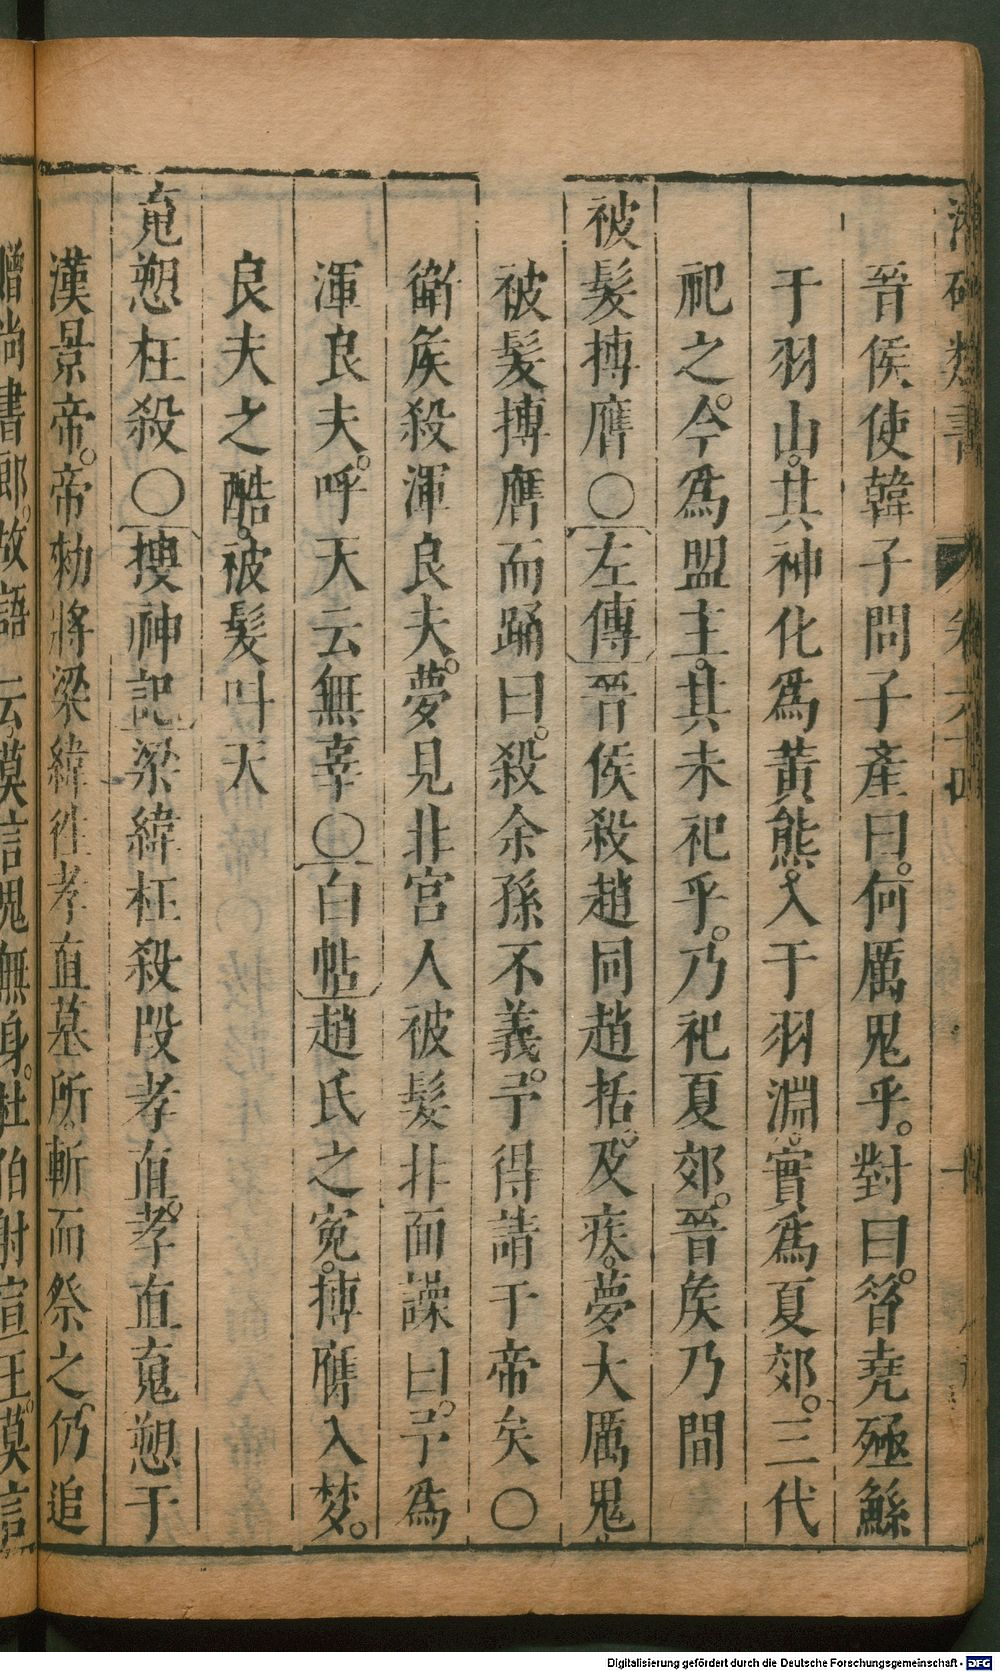 晉侯使韓子問子產曰。何厲鬼乎。對曰。昝堯殛鯀
于羽山。其神化爲黃熊。入于羽淵。實爲夏郊。三代
祀之。今爲盟主。其未祀乎。乃祀夏郊。晉矦乃間
被髮搏膺○左傳晉侯殺趙同趙括。及疾。夢大厲鬼
被髮搏膺而踊曰。殺余孫不義。予得請于帝矣○
衛矦殺渾良夫。夢見北宮人被髮北面譟曰。予爲
渾良夫。呼天云無辜○白帖趙氏之冤。搏膺入梦。
良夫之酷。被髮叫天
䰟愬枉殺○搜神記梁緯枉殺段孝直。孝直䰟愬于
漢景帝。帝勑將梁緯徃孝直墓所。斬而祭之。仍追
贈尚書郎。故語云。莫言鬼無身。杜伯射宣王。莫言
Digitalisierung gefördert durch die Deutsche Forschungsgemeinschaft - DFG